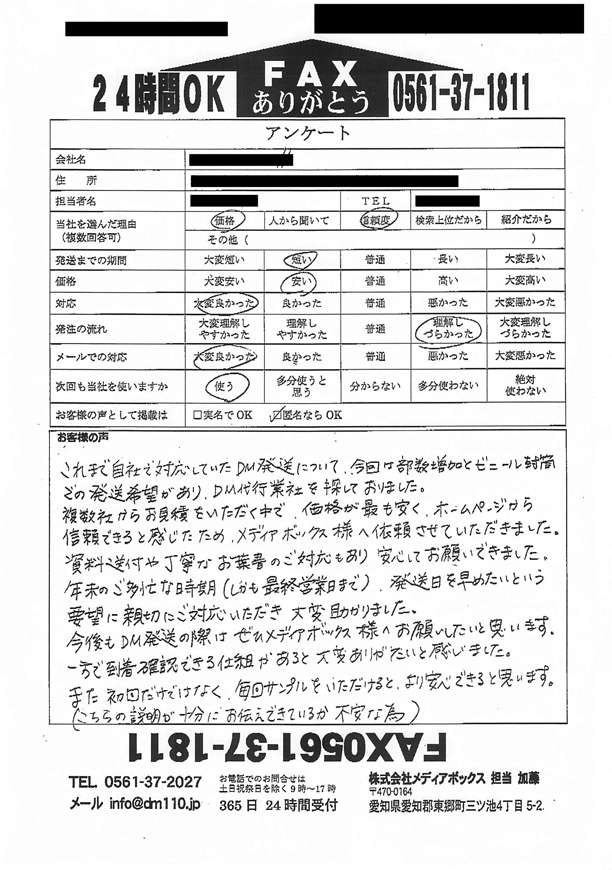 24時間OK
FAX
ありがとう
0561-37-1811
アンケート
会社名
住　所
担当者名 TEL
当社を選んだ理由 (複数回答可) 価格 人から聞いて 信頼度 検索上位だから 紹介だから
その他 ( )
発送までの期間 大変短い 短い 普通 長い 大変長い
価格 大変安い 安い 普通 高い 大変高い
対応 大変良かった 良かった 普通 悪かった 大変悪かった
発注の流れ 大変理解しやすかった 理解しやすかった 普通 理解しづらかった 大変理解しづらかった
メールでの対応 大変良かった 良かった 普通 悪かった 大変悪かった
次回も当社を使いますか 使う 多分使うと思う 分からない 多分使わない 絶対使わない
お客様の声として掲載は □実名でOK ☑匿名ならOK
お客様の声
これまで自社で対応していたDM発送について、今回は部数増加とビニール封筒
での発送希望があり、DM代行業社を探しておりました。
複数社からお見積をいただく中で、価格が最も安く、ホームページから
信頼できると感じたため、メディアボックス様へ依頼させていただきました。
資料送付や丁寧なお葉書のご対応もあり安心してお願いできました。
年末のご多忙な時期(しかも最終営業日まで)、発送日を早めたいという
要望に親切にご対応いただき大変助かりました。
今後もDM発送の際はぜひメディアボックス様へお願いしたいと思います。
一方で到着確認できる仕組があると大変ありがたいと感じました。
また初回だけではなく、毎回サンプルをいただけると、より安心できると思います。
(こちらの説明が十分にお伝えできているか不安な為)
FAX0561-37-1811
TEL 0561-37-2027
メール info@dm110.jp
お電話でのお問合せは
土日祝祭日を除く9時～17時
365日 24時間受付
株式会社メディアボックス 担当 加藤
〒470-0164
愛知県愛知郡東郷町三ツ池4丁目 5-2.